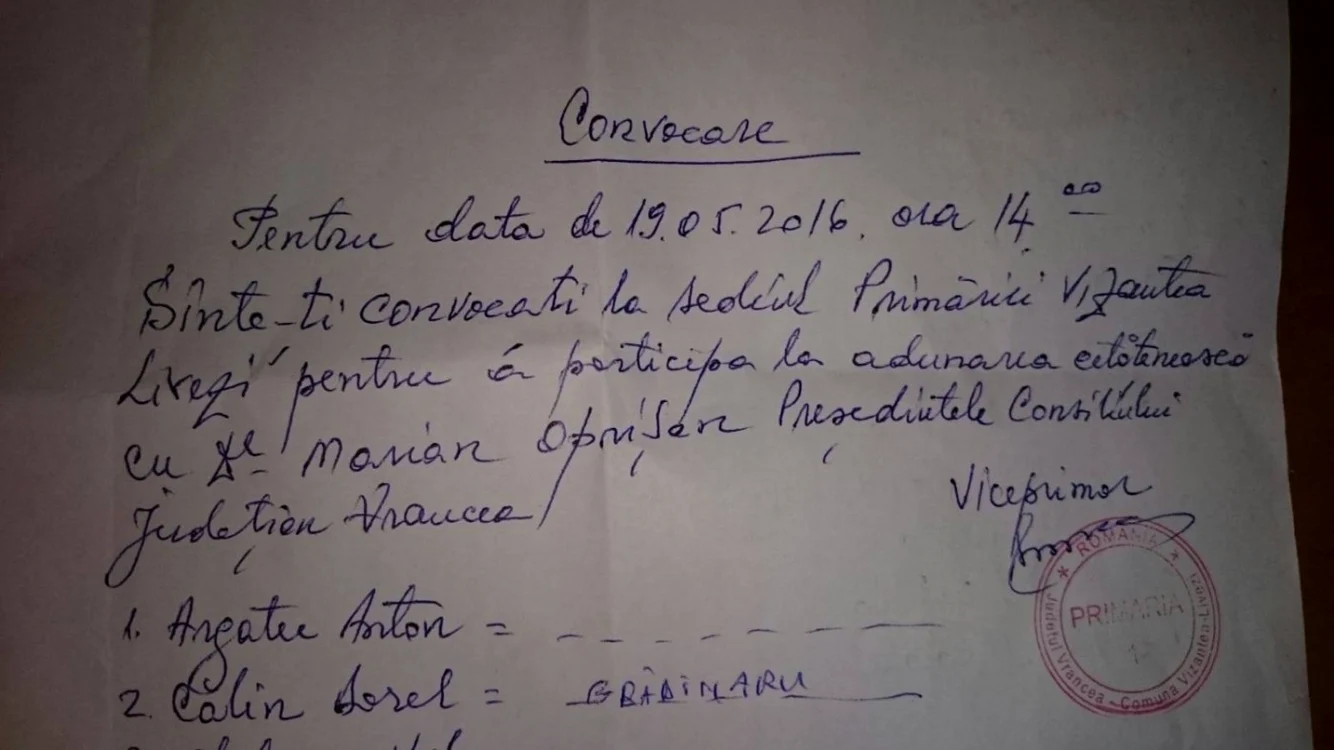 Convocare
Pentru data de 19.05.2016. ora 14 00
Sînte-ti convocati la sediul Primăriei Vizantea
Livezi pentru a participa la adunarea cetătenească
cu Marian Oprișan Președintele Consiliului
Județian Vrancea
Viceprimar
1. Argatu Anton =
2. Calin Sorel = GRĂDINARU
* ROMANIA *
PRIMARIA
Judetul Vrancea - Comuna Vizantea-Livezi